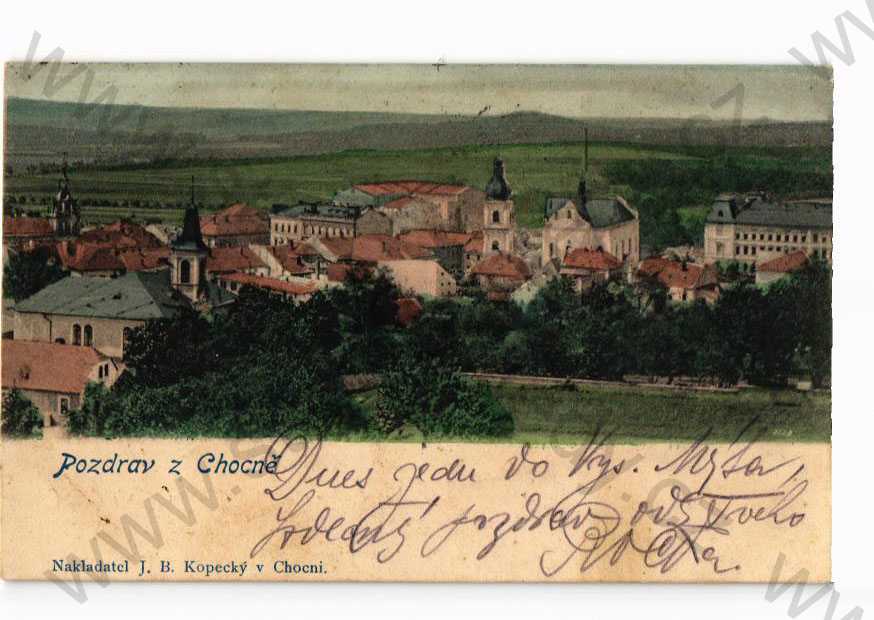 Pozdrav z Chocně
Dnes jedu do Vys. Mýta,
Srdečný pozdrav od Tvého
Nakladatel J. B. Kopecký v Chocni.